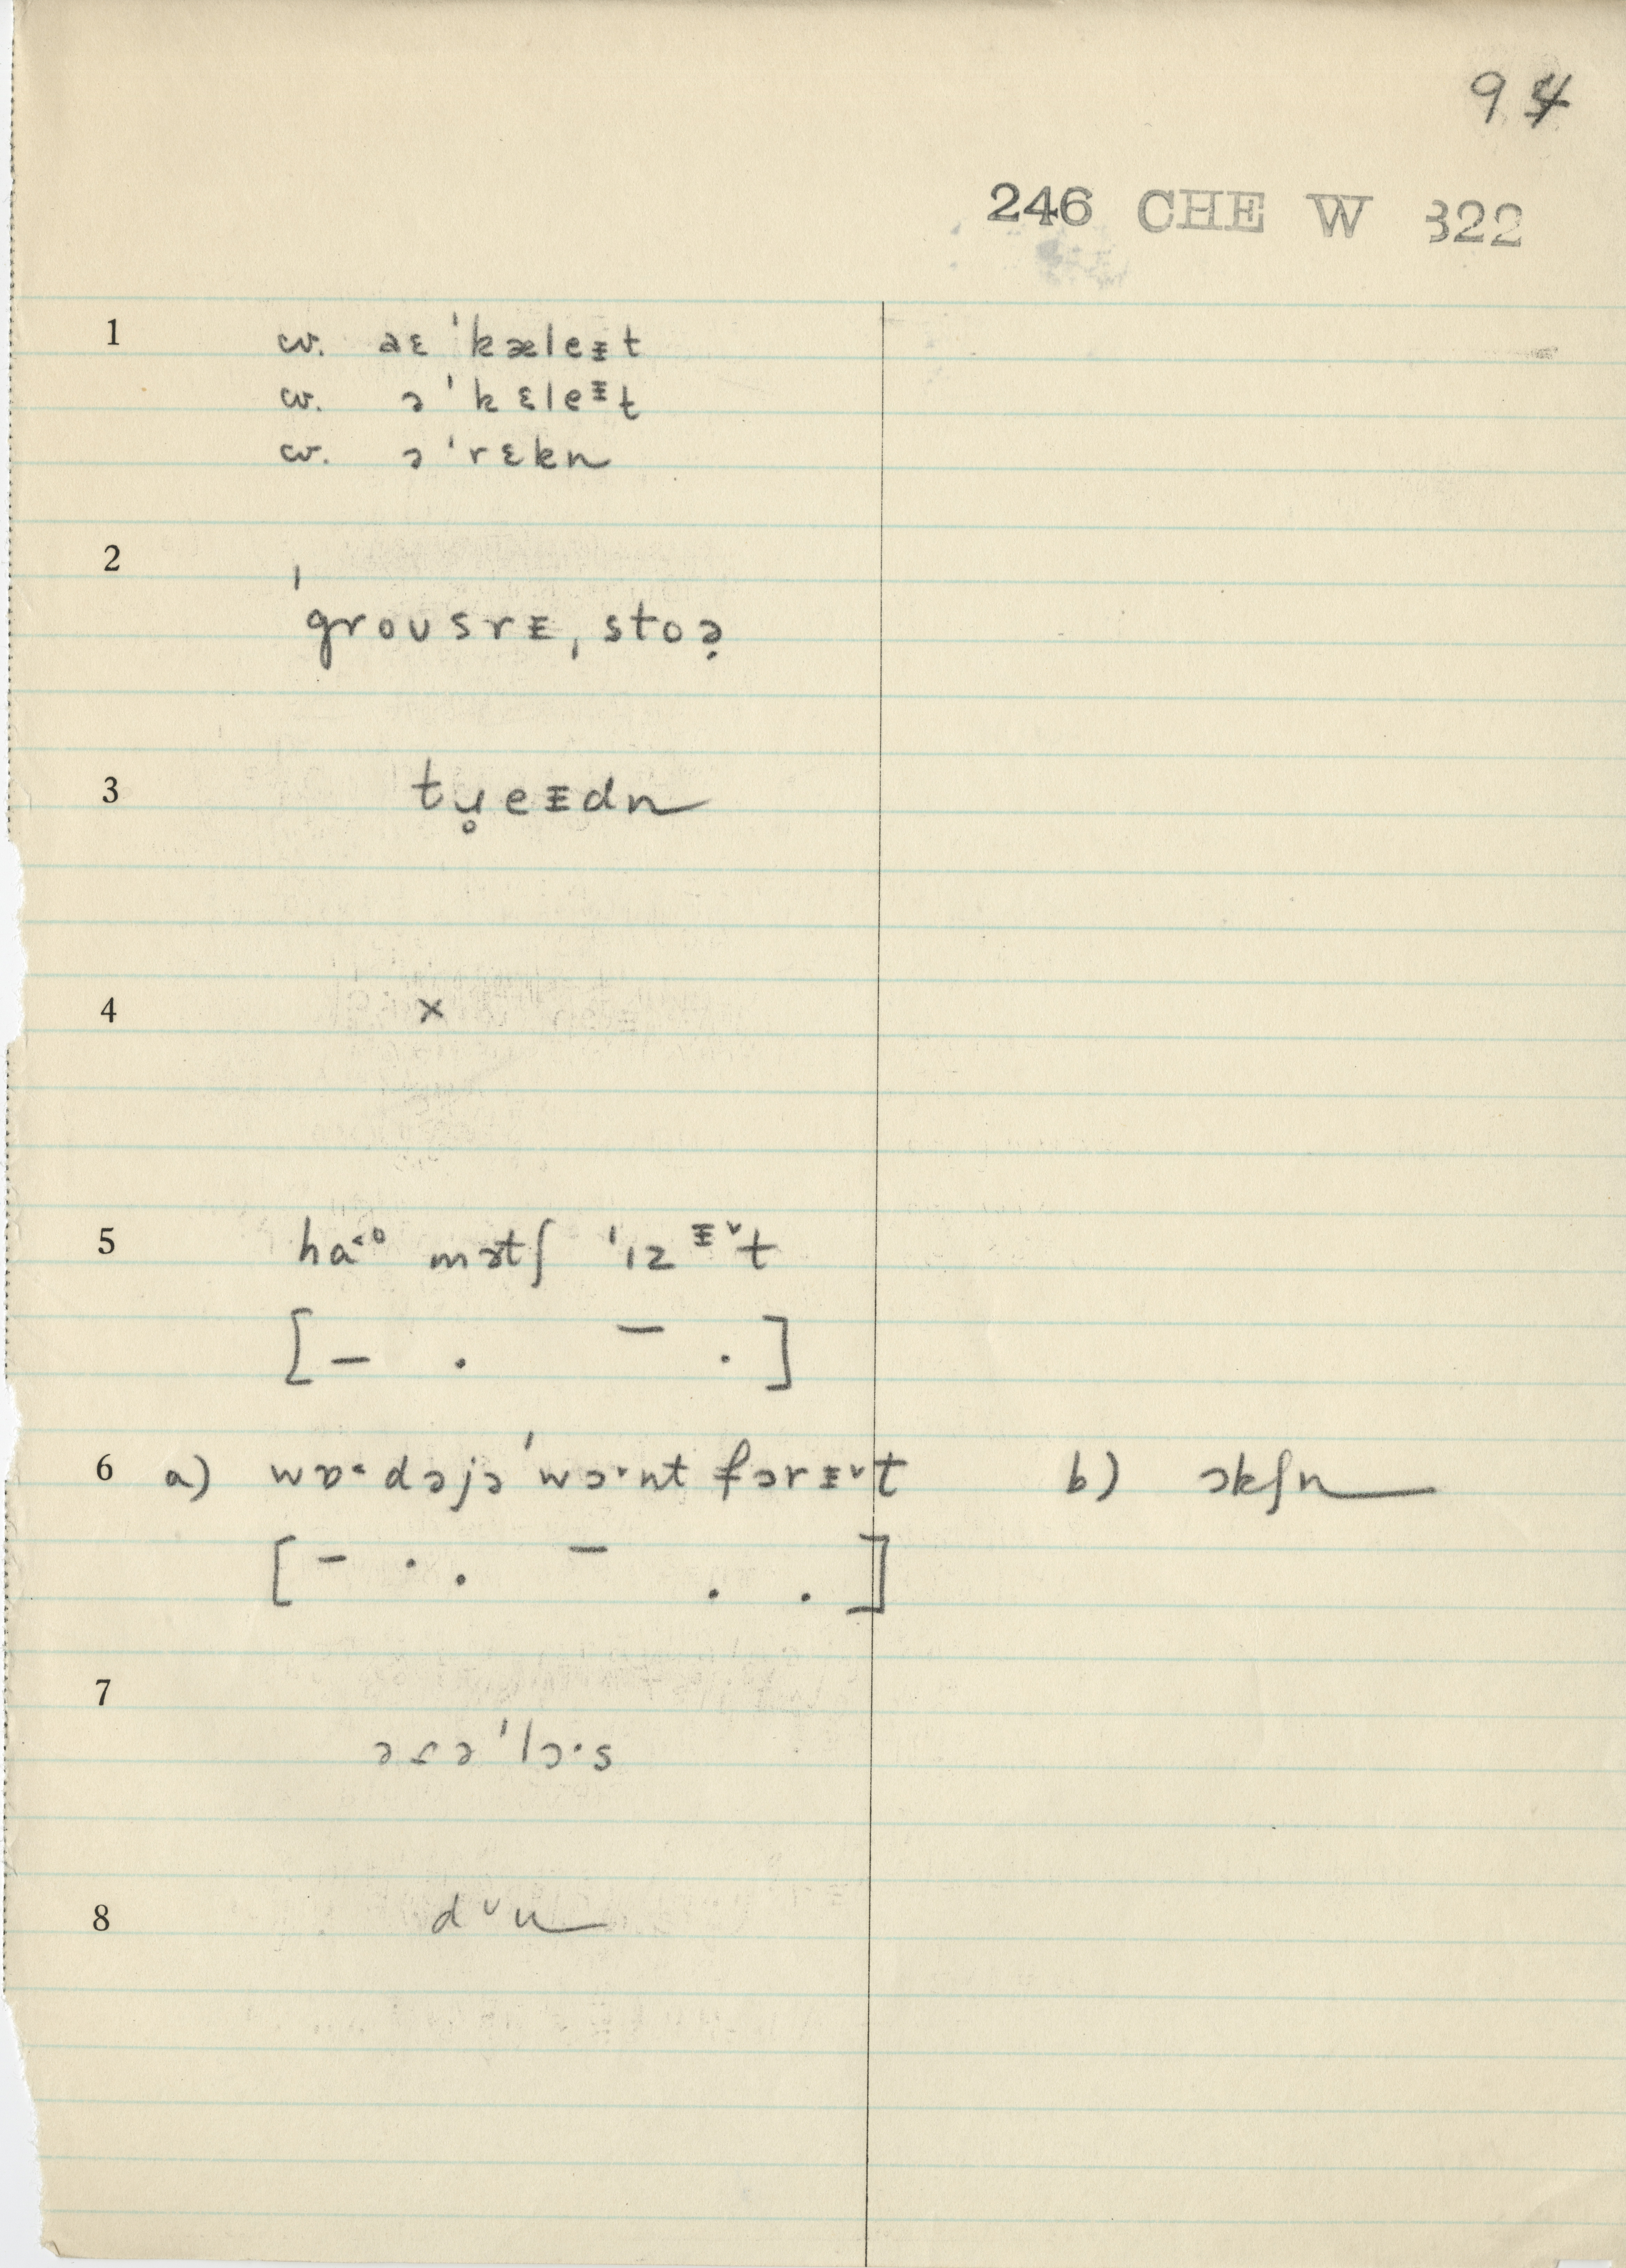 94
246 CHE W 322
1 w. aɛ ˈkæleᵻt
w. ə ˈkɛleᵻt
w. ə ˈrɛkn
2 ˈgroʊsrᵻ, stoə̣
3 tɥ̥eᵻdn
4 x
5 haˑ˂ᵒ mɜtʃ ˈɪz ᵻ˅t
[– . – .]
6 a) wɒ˂dəjə ˈwɔ˞nt fərᵻ˅t b) ɔkʃn
[– . . – . .]
7 əɾə ˈlɔ·s
8 dᶷn